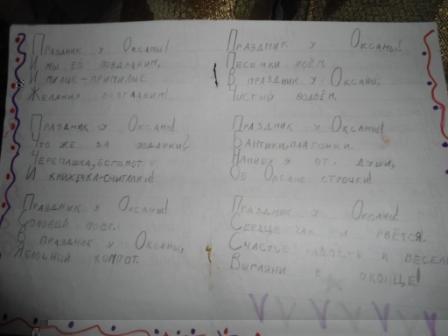 Праздник у Оксаны!
И мы её поздравим,
И милые-примилые
Желания отгадаем!
Праздник у Оксаны!
Что же за подарки?
Черепашка, бегемот
И книжечка-считалки!
Праздник у Оксаны!
Соловей поёт.
В праздник у Оксаны,
Яблочный компот.
Праздник у Оксаны!
Песенки поём.
В праздник у Оксаны,
Чистый водоём.
Праздник у Оксаны!
Бантики, платочки.
Напишу я от души,
Об Оксане строчки!
Праздник у Оксаны!
Сердце так и рвётся.
Счастье, радость и веселье
Выгляни в оконце!